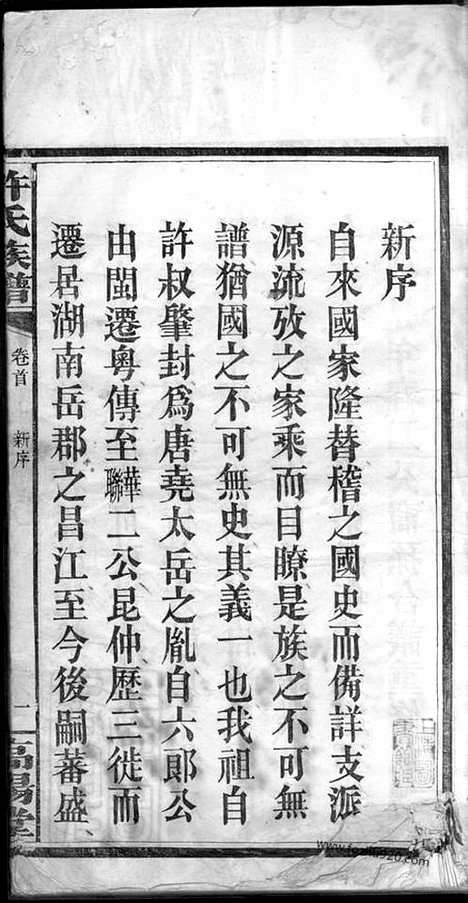 新序
自來國家隆替稽之國史而備詳支派
源流攷之家乘而目瞭是族之不可無
譜猶國之不可無史其義一也我祖自
許叔肇封為唐堯太岳之胤自六郎公
由閩遷粤傳至華聯二公昆仲歷三徙而
遷居湖南岳郡之昌江至今後嗣蕃盛、
許氏族譜
卷首 新序
一
高陽堂